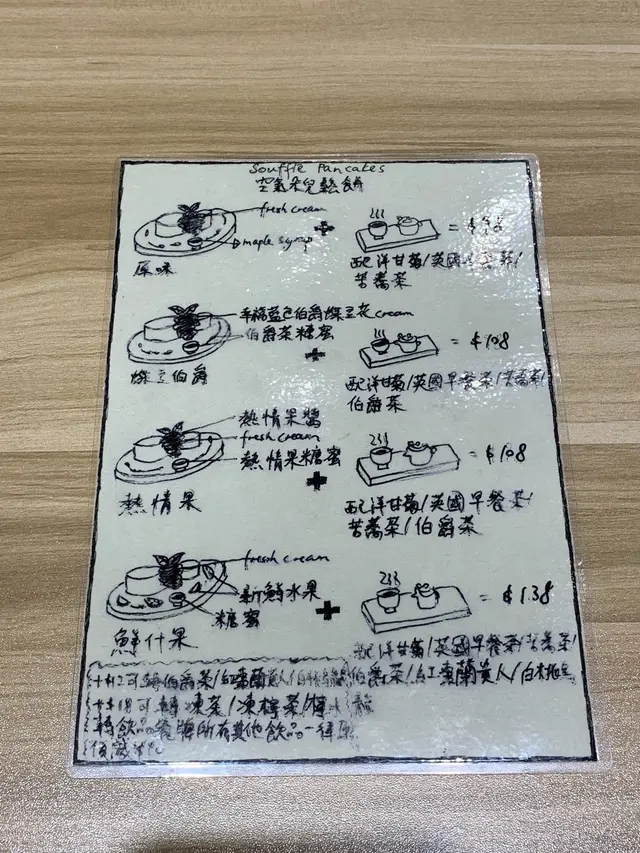 Souffle Pancakes
空氣朵兒鬆餅
fresh cream
maple syrup
原味
配洋甘菊/英國早餐茶/
苦蕎茶
cream
伯爵茶糖蜜
蝶豆伯爵
= $108
配洋甘菊/英國早餐茶/苦蕎茶/
伯爵茶
熱情果醬
fresh cream
熱情果糖蜜
熱情果
= $108
配洋甘菊/英國早餐茶/
苦蕎茶/伯爵茶
fresh cream
新鮮水果
糖蜜
鮮什果
= $138
配洋甘菊/英國早餐茶/苦蕎茶/
伯爵茶/紅棗蘭貴人/白桃烏
伯爵茶/紅棗蘭貴人/
凍茶/凍檸茶/
轉飲品 所有其他飲品一律